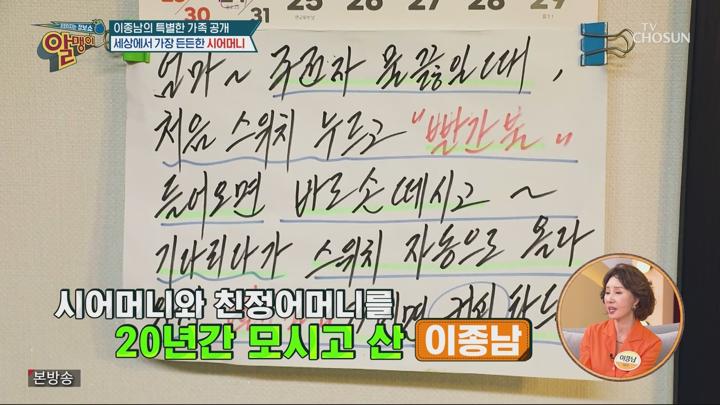 알맹이
이종남의 특별한 가족 공개
세상에서 가장 든든한 시어머니
TV CHOSUN
30 31 25 26 27 28 29
엄마~ 주전자 물 끓일 때,
처음 스위치 누르고 "빨간불"
들어오면 바로 손 떼시고 ~
기다리다가 스위치 자동으로 올라
시어머니와 친정어머니를
20년간 모시고 산 이종남
이종남
본방송